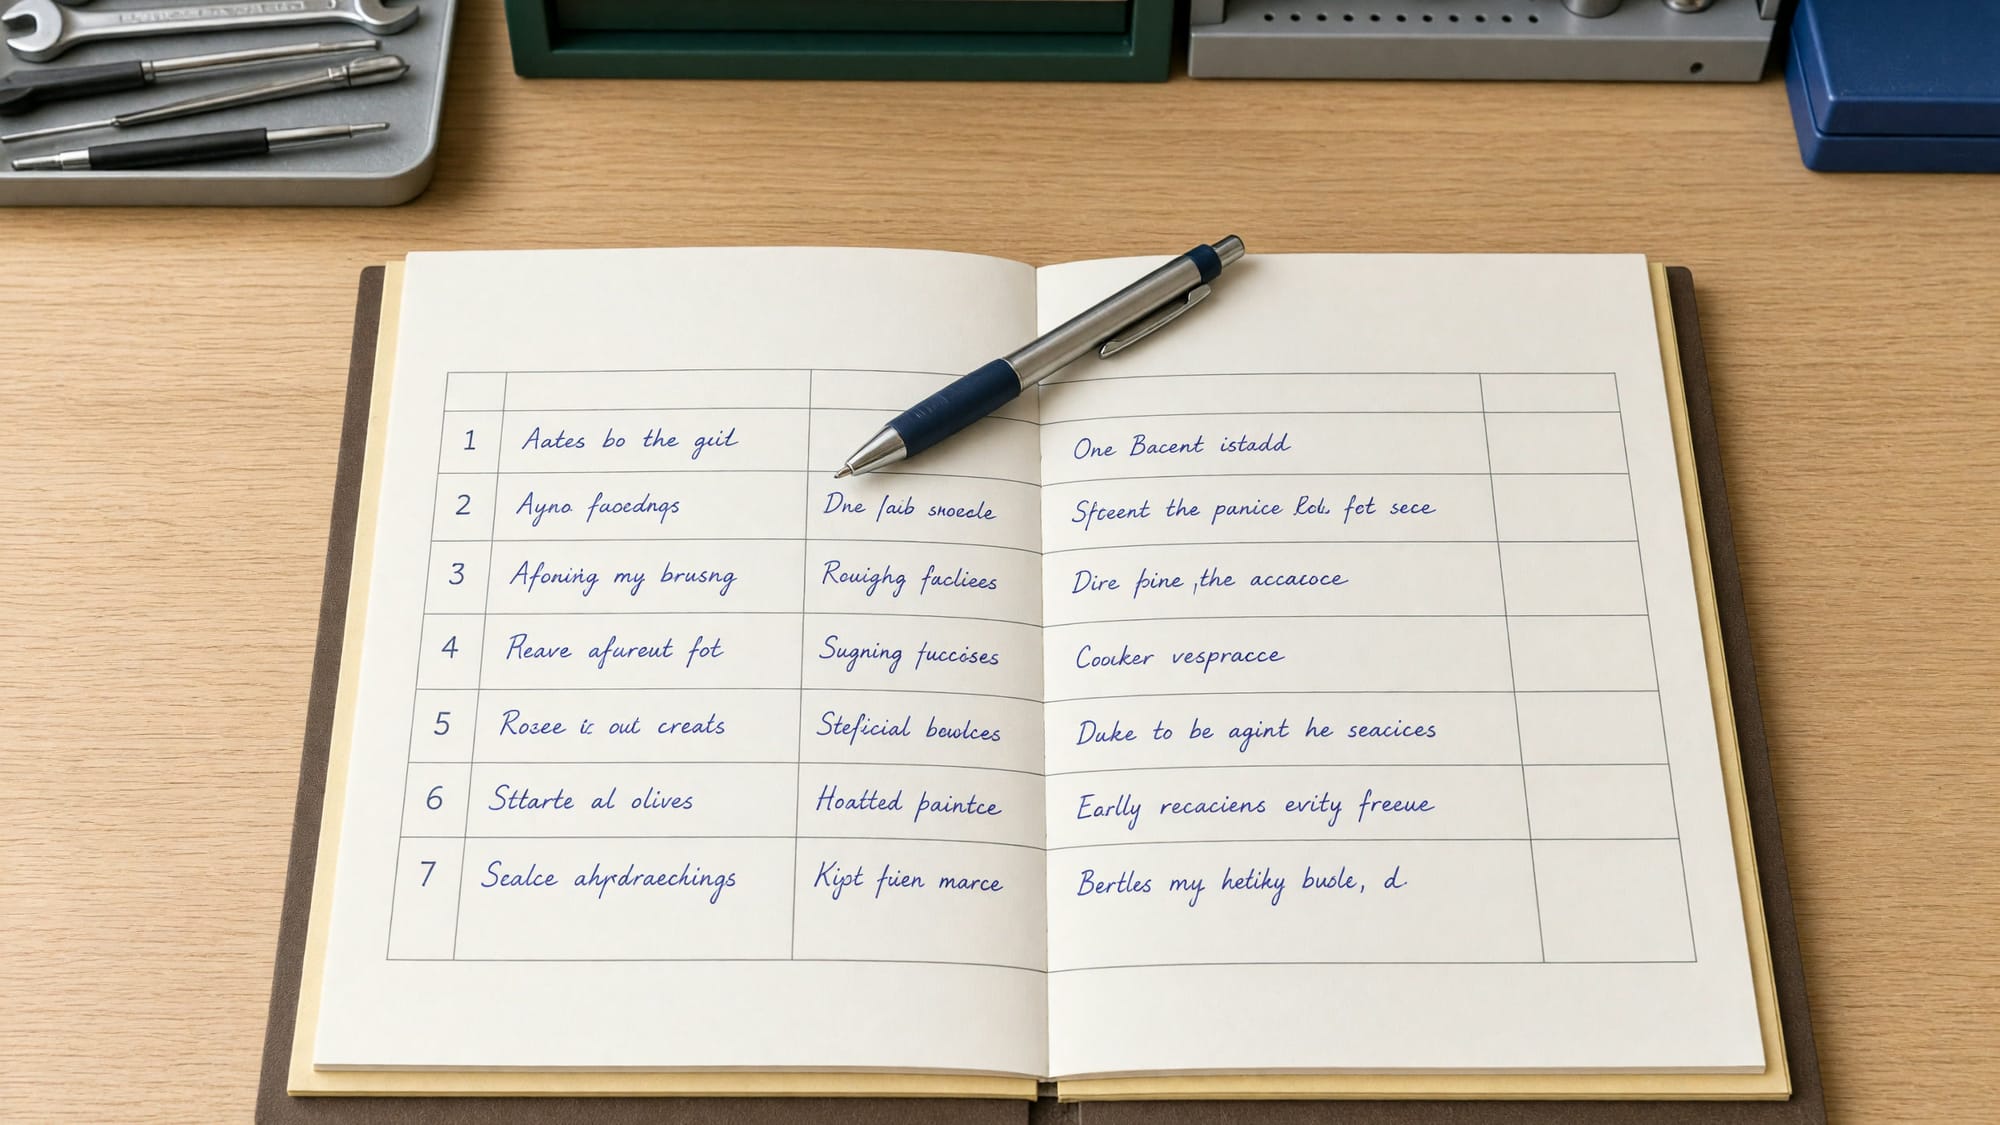 1 Aates bo the guil One Bacent istadd
2 Ayno fuoedngs Dne faib snoecle Sfceent the panice fot sece
3 Afoning my brusng Rouighg facliees Dire pine ,the accacoce
4 Reave afureut fot Sugning fuccises Coouker vespracce
5 Rozee ic out creats Steficial bowlces Duke to be agint he seacices
6 Sttarte al olives Hoatted paintce Earlly recaciens evity freeue
7 Sealce Kipt fuen marce Bertles my hetiky busle, d.